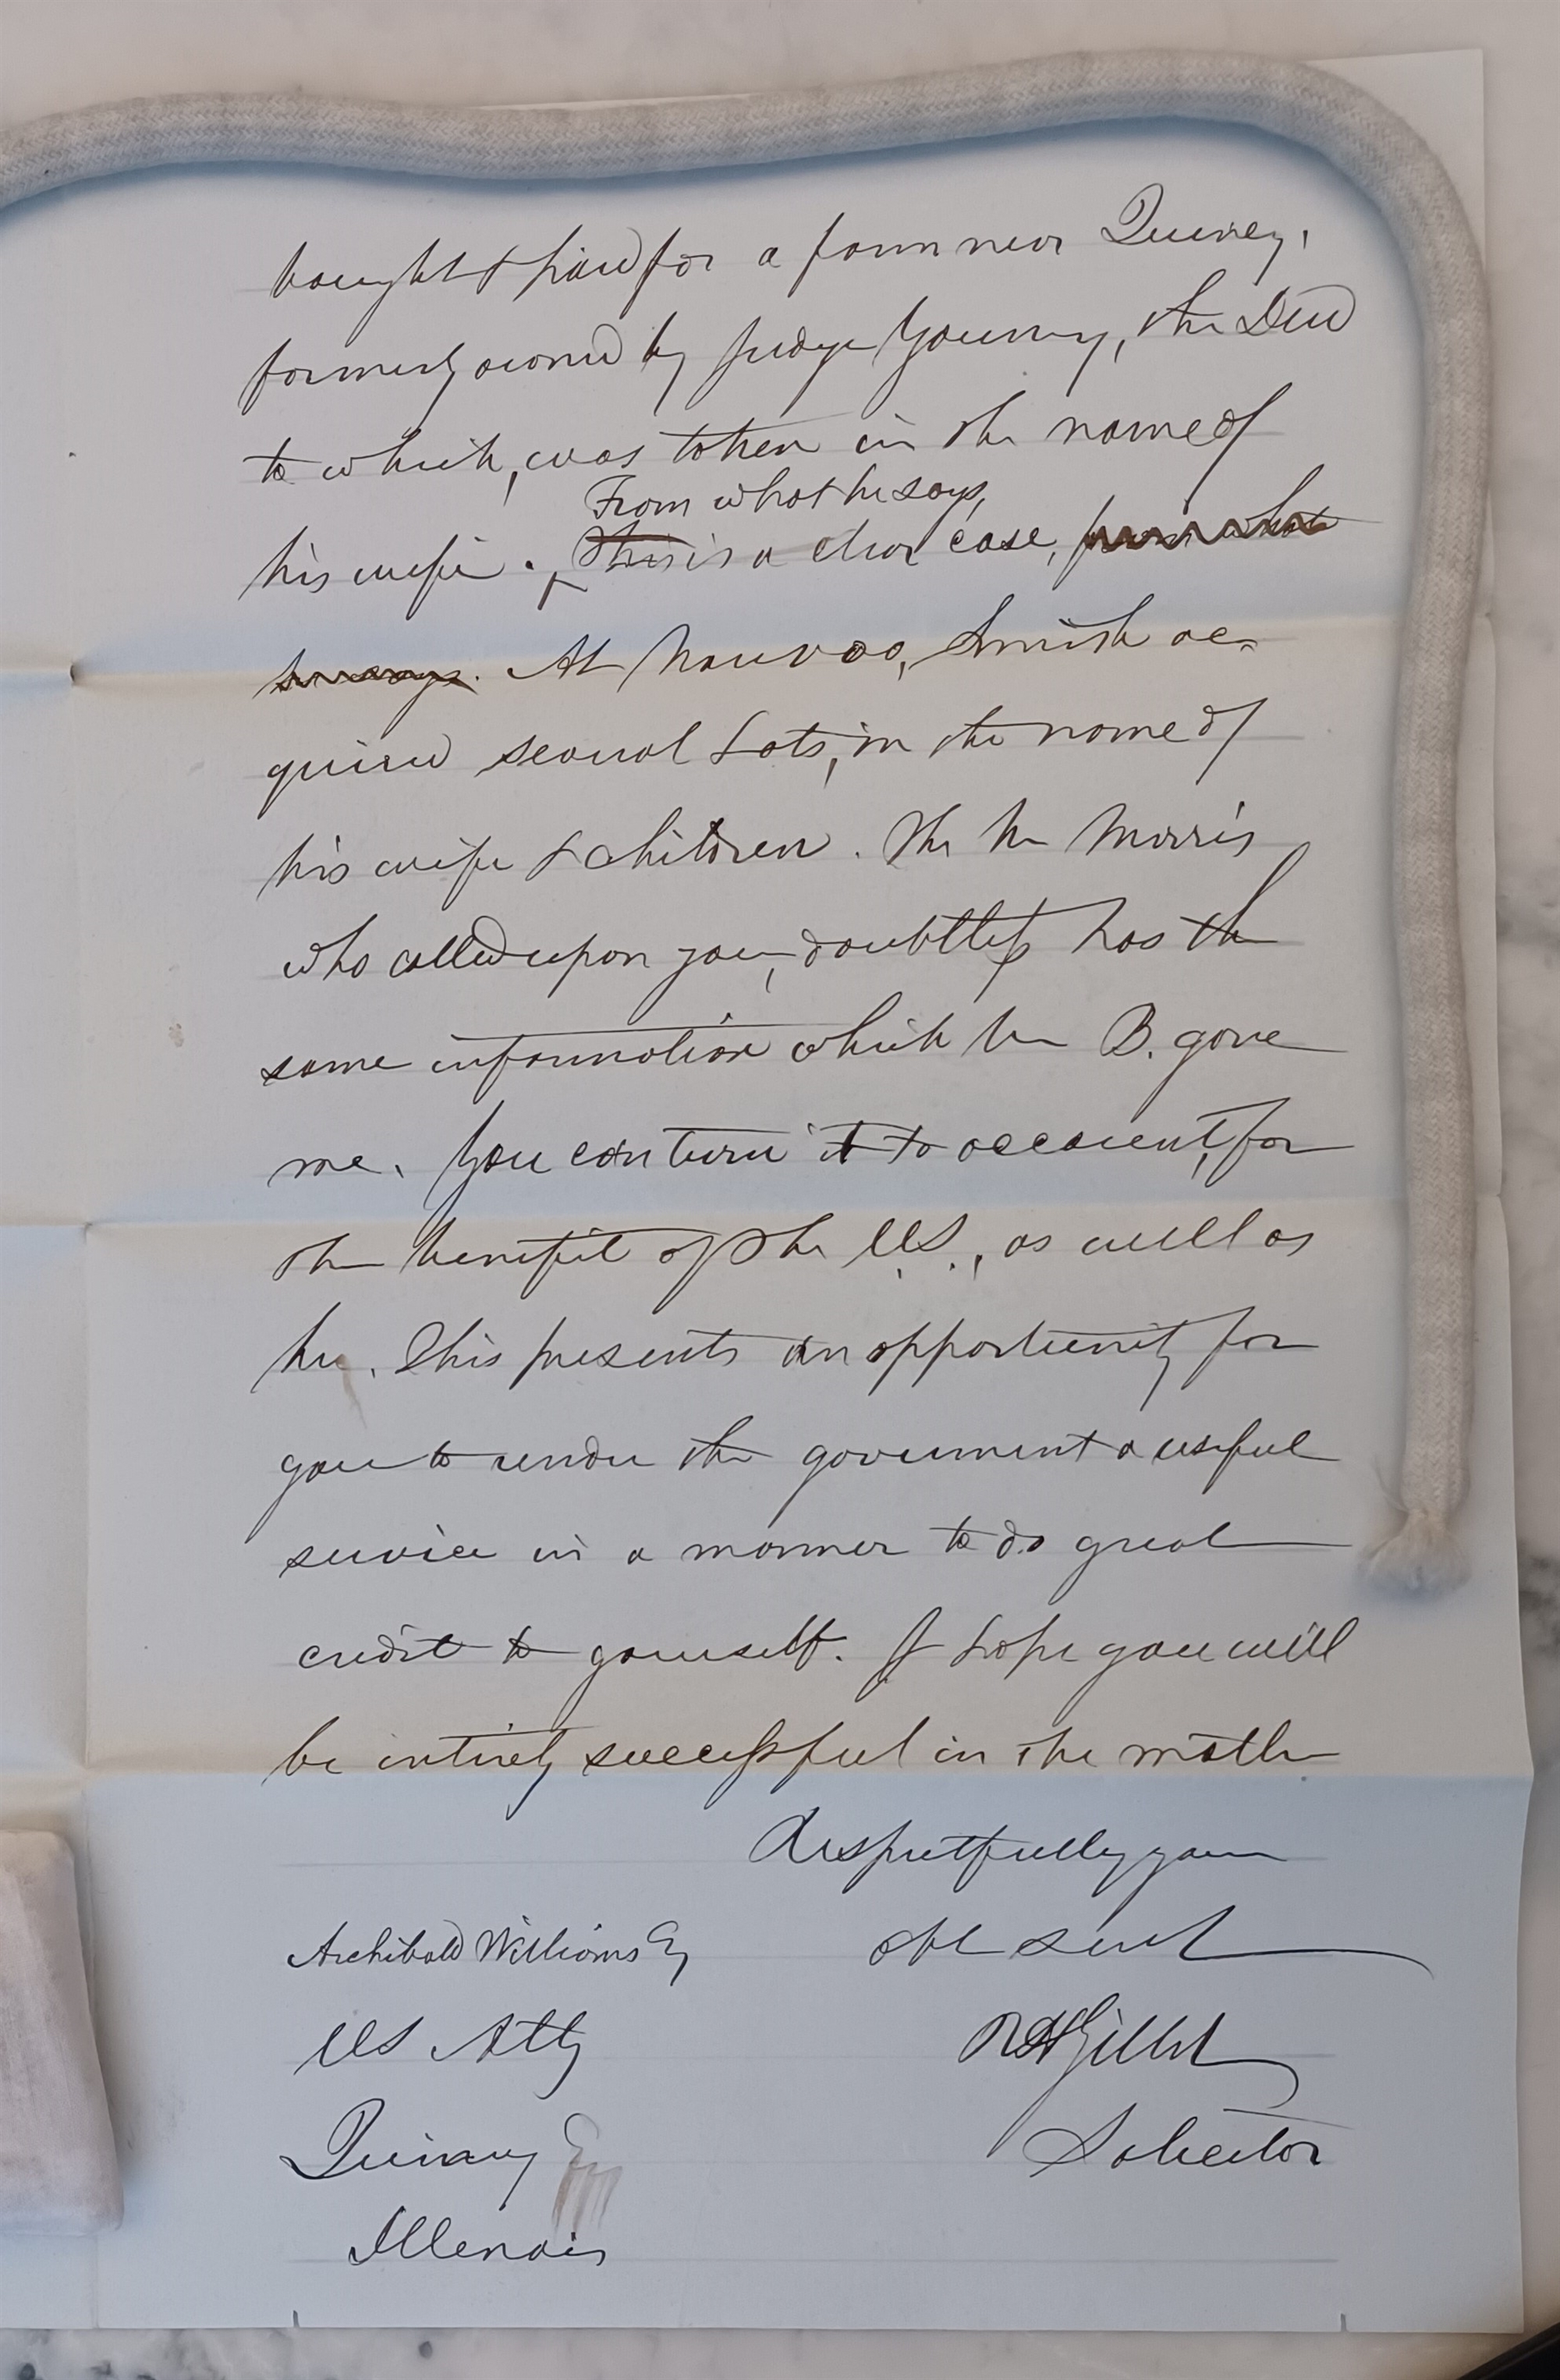 bought & paid for a farm near Quincy,
formerly owned by Judge Young, the Deed
to which, was taken in the name of
From what he says,
his wife. This is a clear case, from what
he says. At Nauvoo, Smith ac-
quired several Lots, in the name of
his wife & children. The Mr Morris
who called upon you, doubtless has the
same information which Mr B. gave
me. You can turn it to account, for
the benefit of the U.S., as well as
he. This presents an opportunity for
you to render the government a useful
service in a manner to do great
credit to yourself. I hope you will
be entirely successful in the matter
Respectfully your
Obt Servt
Archibald Williams Esq
US Atty
R H Gillet
Quincy
Solicitor
Illinois